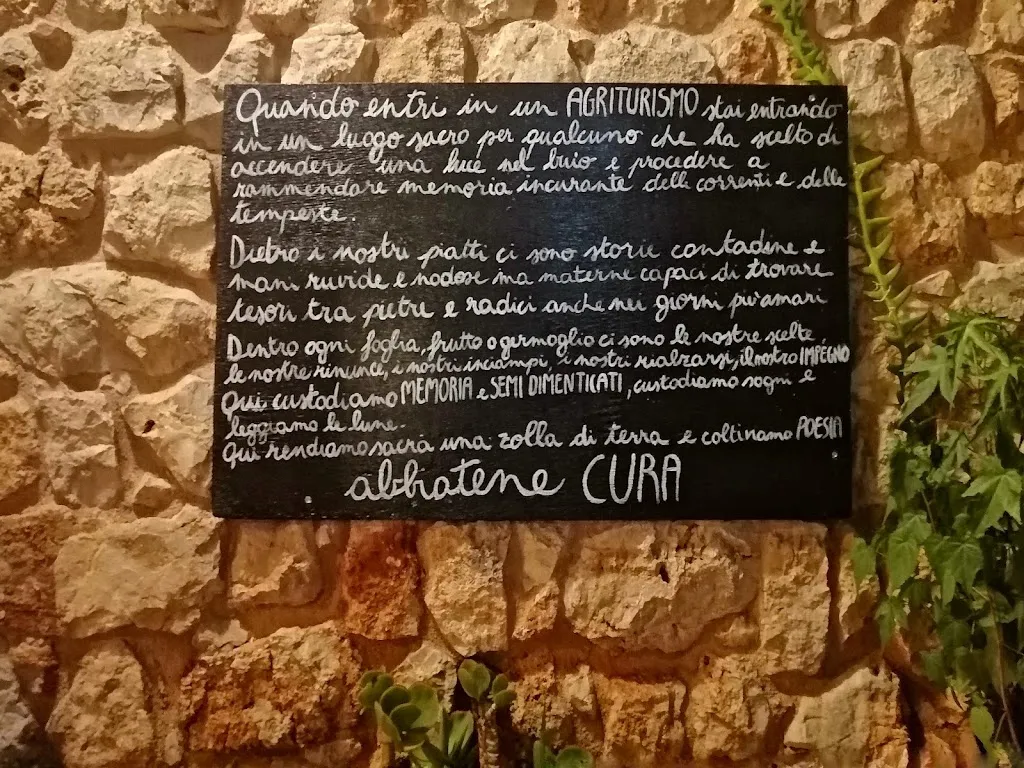 Quando entri in un AGRITURISMO stai entrando
in un luogo sacro per qualcuno che ha scelto di
accendere una luce nel buio e procedere a
rammendare memoria incurante delle correnti e delle
tempeste.
Dietro i nostri piatti ci sono storie contadine e
mani ruvide e nodose ma materne capaci di trovare
tesori tra pietre e radici anche nei giorni più amari
Dentro ogni foglia, frutto o germoglio ci sono le nostre scelte,
le nostre rinunce, i nostri inciampi, i nostri rialzarsi, il nostro IMPEGNO
Qui custodiamo MEMORIA e SEMI DIMENTICATI, custodiamo sogni e
leggiamo le lune.
Qui rendiamo sacra una zolla di terra e coltiviamo POESIA
abbiatene CURA